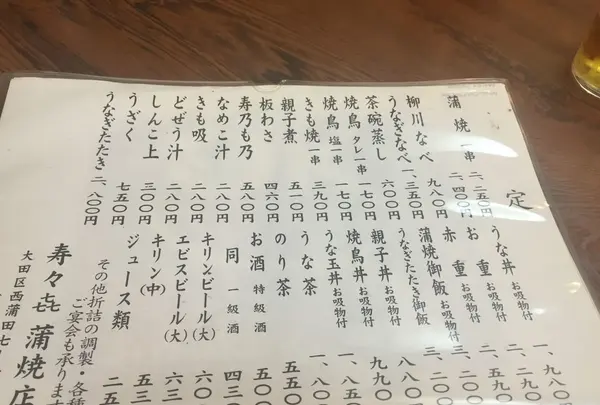 定
蒲焼 一串 二、二五〇円
二、四〇〇円
柳川なべ 九八〇円
うなぎなべ 一、三五〇円
茶碗蒸し 六〇〇円
焼鳥 タレ一串 一七〇円
焼鳥 塩一串 一七〇円
きも焼 一串 三九〇円
親子煮 五一〇円
板わさ 四六〇円
寿乃も乃 五八〇円
なめこ汁 二八〇円
きも吸 二八〇円
どぜう汁 二八〇円
しんこ上 三〇〇円
うざく 七五〇円
うなぎたたき 二、八〇〇円
うな丼 お吸物付
お重 お吸物付
赤重 お吸物付
蒲焼御飯 お吸物付
うなぎたたき御飯
親子丼 お吸物付
焼鳥丼 お吸物付
うな玉丼 お吸物付
うな茶
のり茶 五五〇
お酒 特級酒 五〇〇
同 一級酒 四三
キリンビール(大) 六〇
エビスビール(大) 六三
キリン(中) 五三
ジュース類 二五
その他折詰の調製・各種
ご宴会も承りま
寿々㐂 蒲焼店
大田区西蒲田七